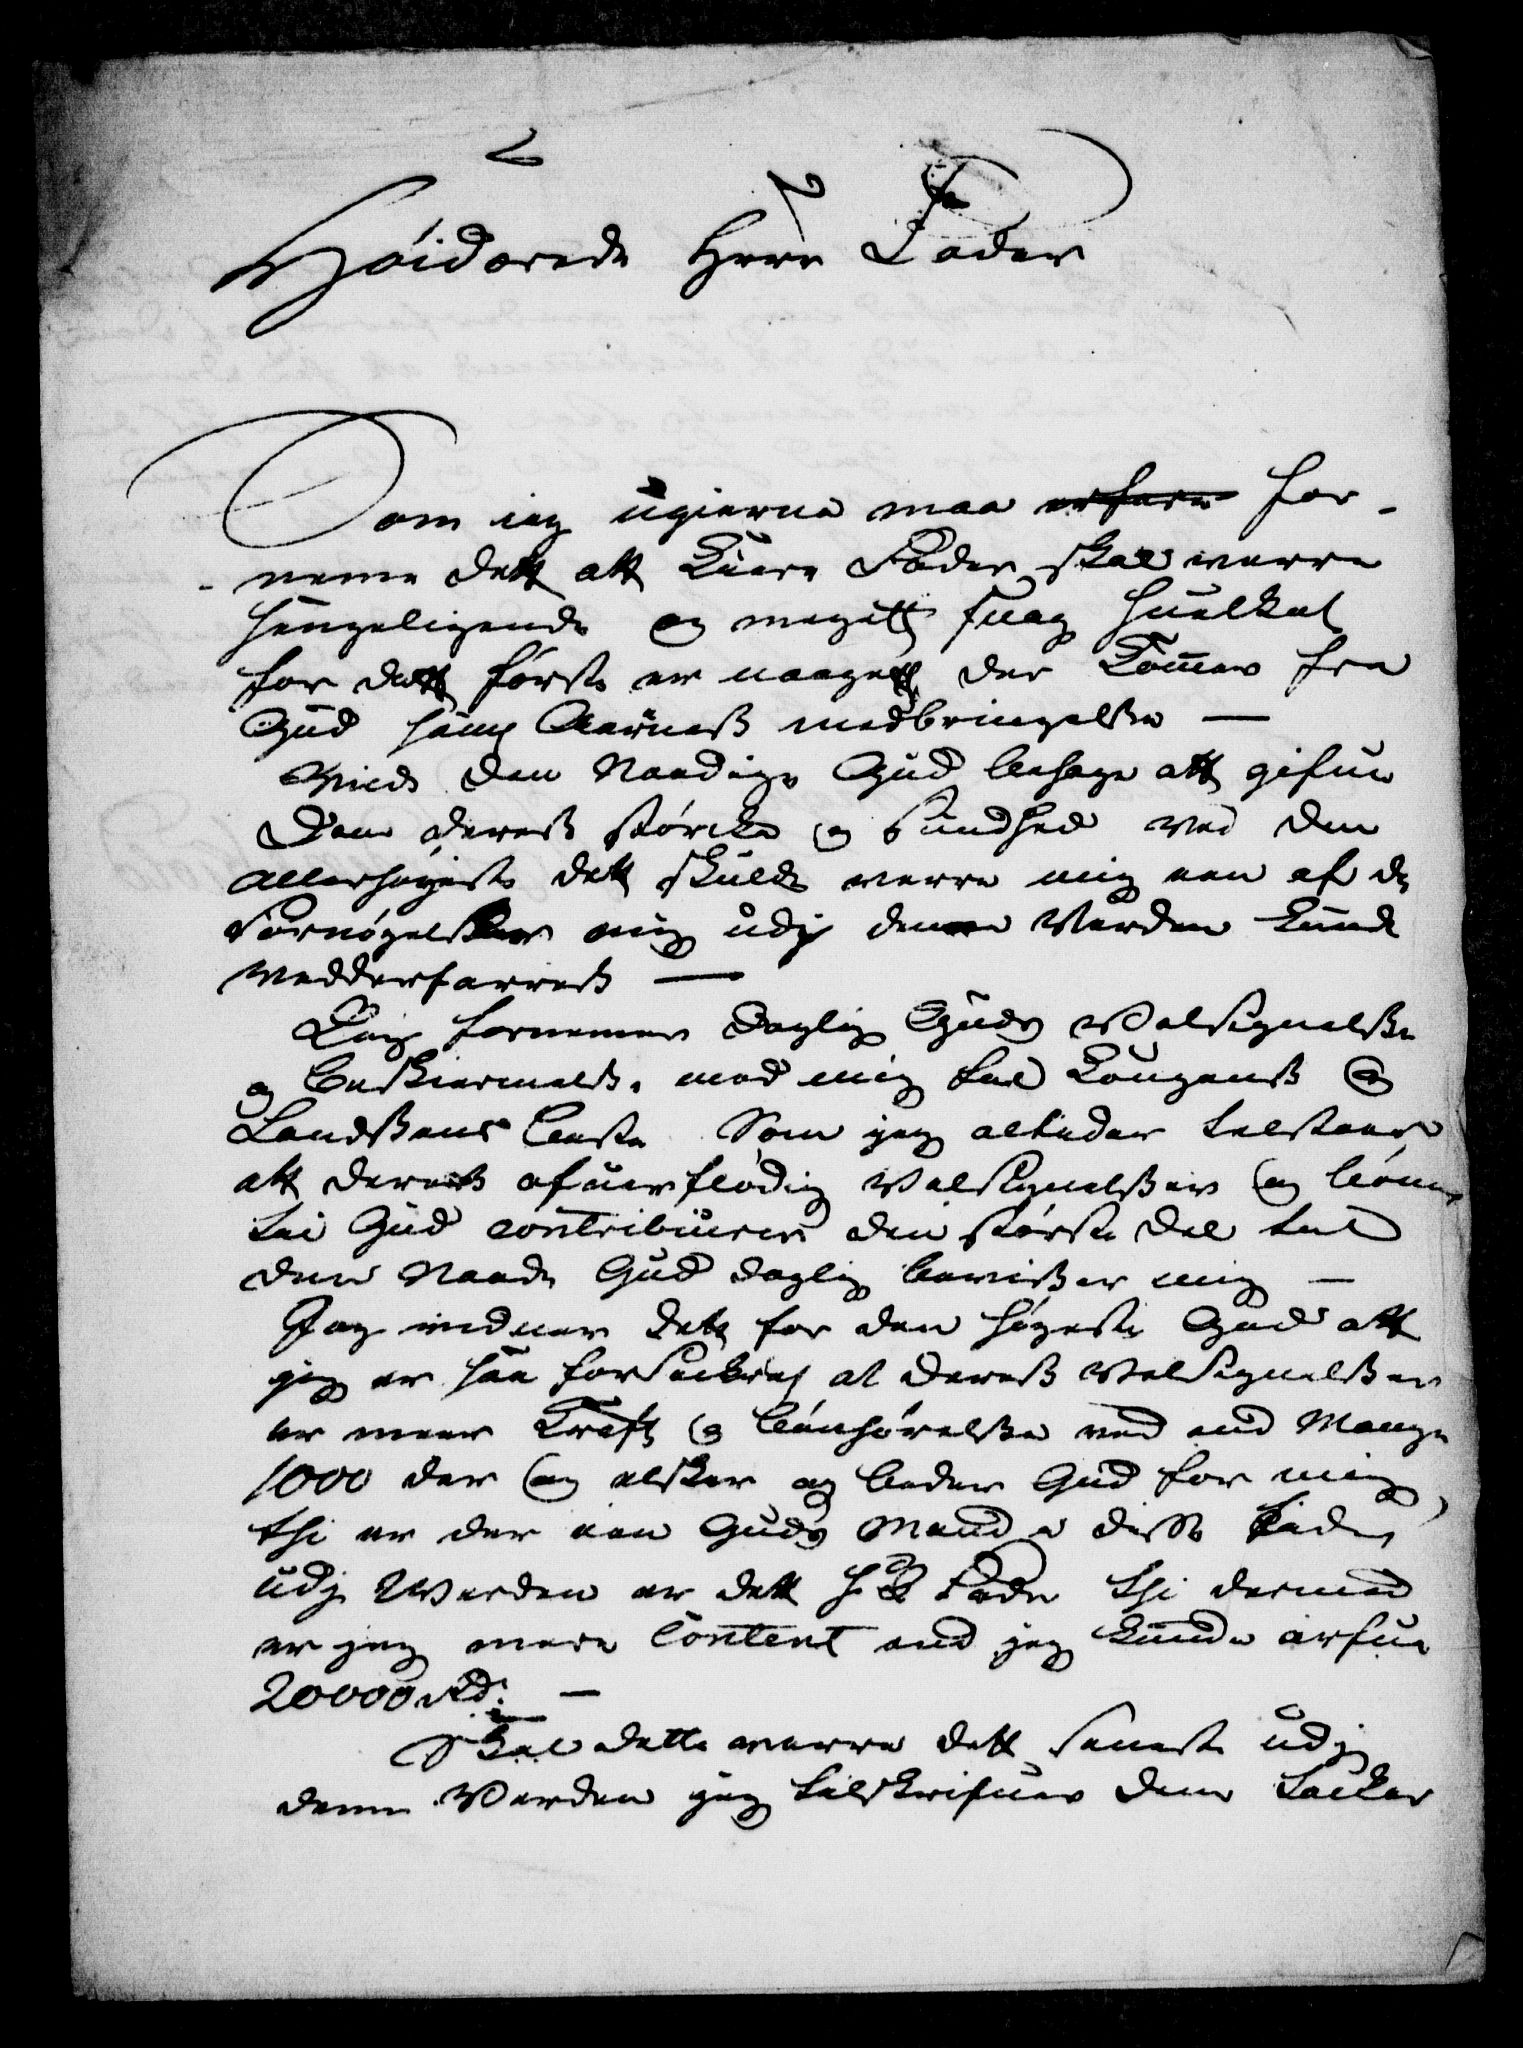 Höidærede Herr Fader
Som ieg ugierne maa erfare for-
-neme dett att Kiere Fader skal werre
sengeligende og megett suag huelket
for dett første er naagett der Kommer fra
Gud samt Aarness medbringelse —
Wilde den Naadige Gud behage att gifue
Dem deress størcke og Sundhed ved den
allerhøyeste dett skulde werre mig een af de
Fornøgelsser mig udj denne Verden Kunde
wedderfarress —
Jeg fornemmer daglig Guds Velsignelsse
og beskiermelse med mig til Kongenss og
Landssens beste Som jeg altider tilstaar
att deress ofuerflødig Velsignelsser og bønner
til Gud contribuerer den største del til
den Naade Gud daglig bevisser mig —
Jeg vidner dett for den høgeste Gud att
jeg er saa forseckret at deress Velsignelsser
er meer Kraft og bønhørelsse ved end Mange
1000 der og elsker og beder Gud for mig,
thi er der een Guds Mand i disse tider
udj Werden er dett H: Fader thi dermed
er jeg mere Content end jeg Kunde arfue
20000 Rd: —
Skal dette werre dett seneste udj
denne Verden jeg tilskrifuer dem tacker